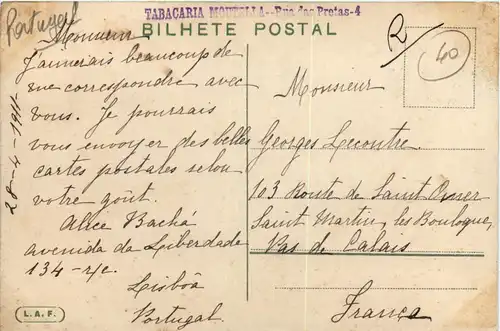 Portugal
TABACARIA MOUTELLA--Rua das Pretas-4
BILHETE POSTAL
2
40
Monsieur
J'aimerais beaucoup de
me correspondre avec
vous. Je pourrais
vous envoyer des belles
cartes postales selon
votre goût.
Alice Bacha
avenida da Liberdade
134-r/c.
Lisbôa
Portugal.
28-4-1911-
Monsieur
Georges Lecontre.
103 Route de Saint Omer
Saint Martin, les Boulogne,
Pas de Calais
França
L.A.F.